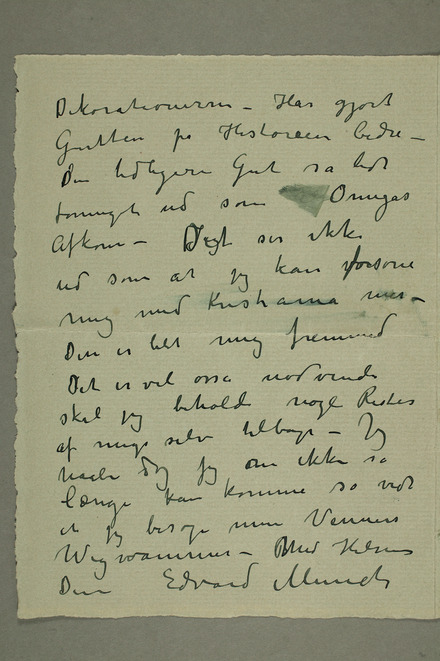 Dekorationerne – Har gjort
Gutten på Historien bedre –
Den tidligere Gut så lidt
ud som Omegas
Afkom – Det ser ikke
ud som at jeg kan forsone
mig med Kristiania mer –
Den er blet mig fremmed
Det er vel også nødvendi
skal jeg beholde nogle Rester
af mig selv tilbage – Jeg
håber dog jeg om ikke så
længe kan komme så vidt
at jeg besøge mine Venners
Wigwammer – Med Hilsen
Din Edvard Munch